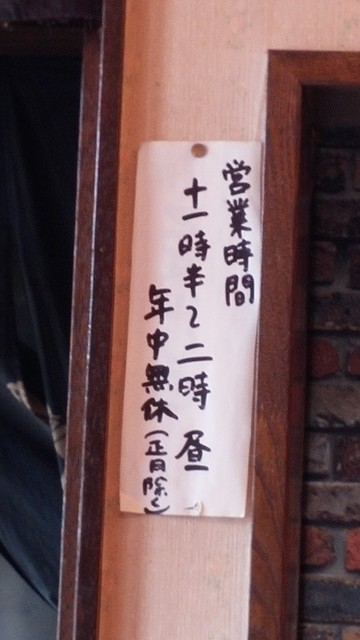 営業時間
十一時半~二時 昼
年中無休(正月除く)